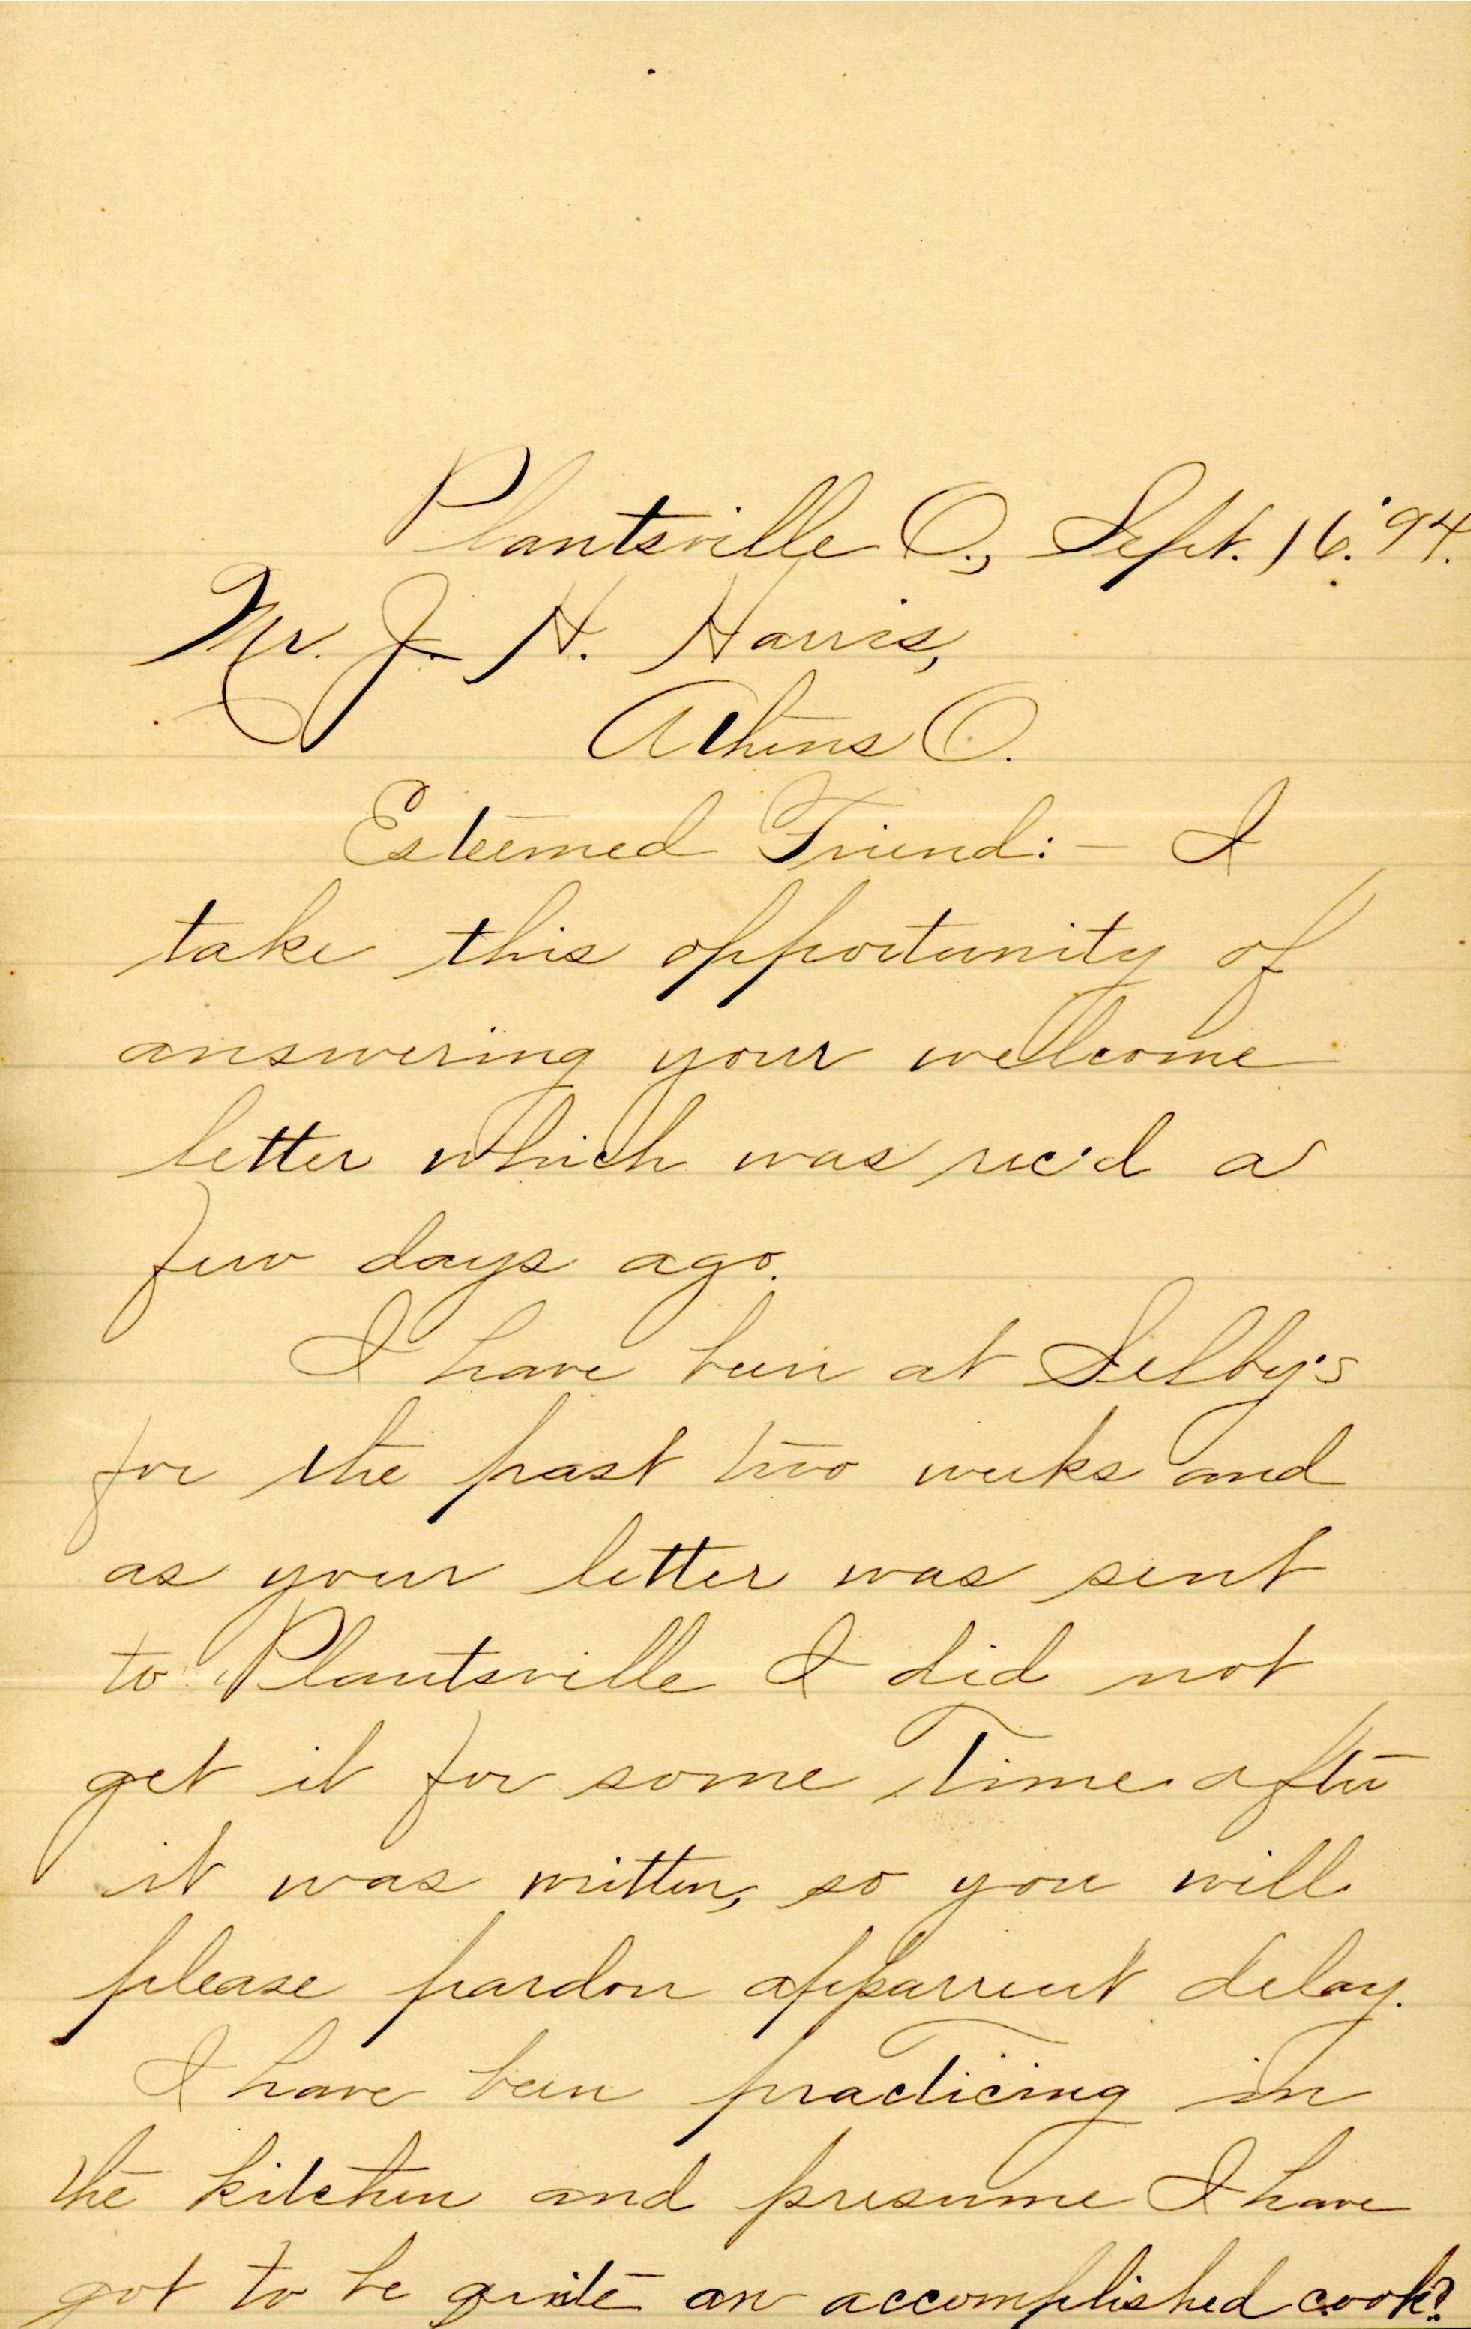 Plantsville O., Sept. 16. '94.
Mr. J. H. Harris,
Athens O.
Esteemed Friend:- I
take this opportunity of
answering your wellcome
letter which was rec'd a
few days ago.
I have been at Selby's
for the past two weeks and
as your letter was sent
to Plantsville I did not
get it for some time after
it was written, so you will
please pardon apparrent delay.
I have been practicing in
the kitchen and presume I have
got to be quite an accomplished cook?